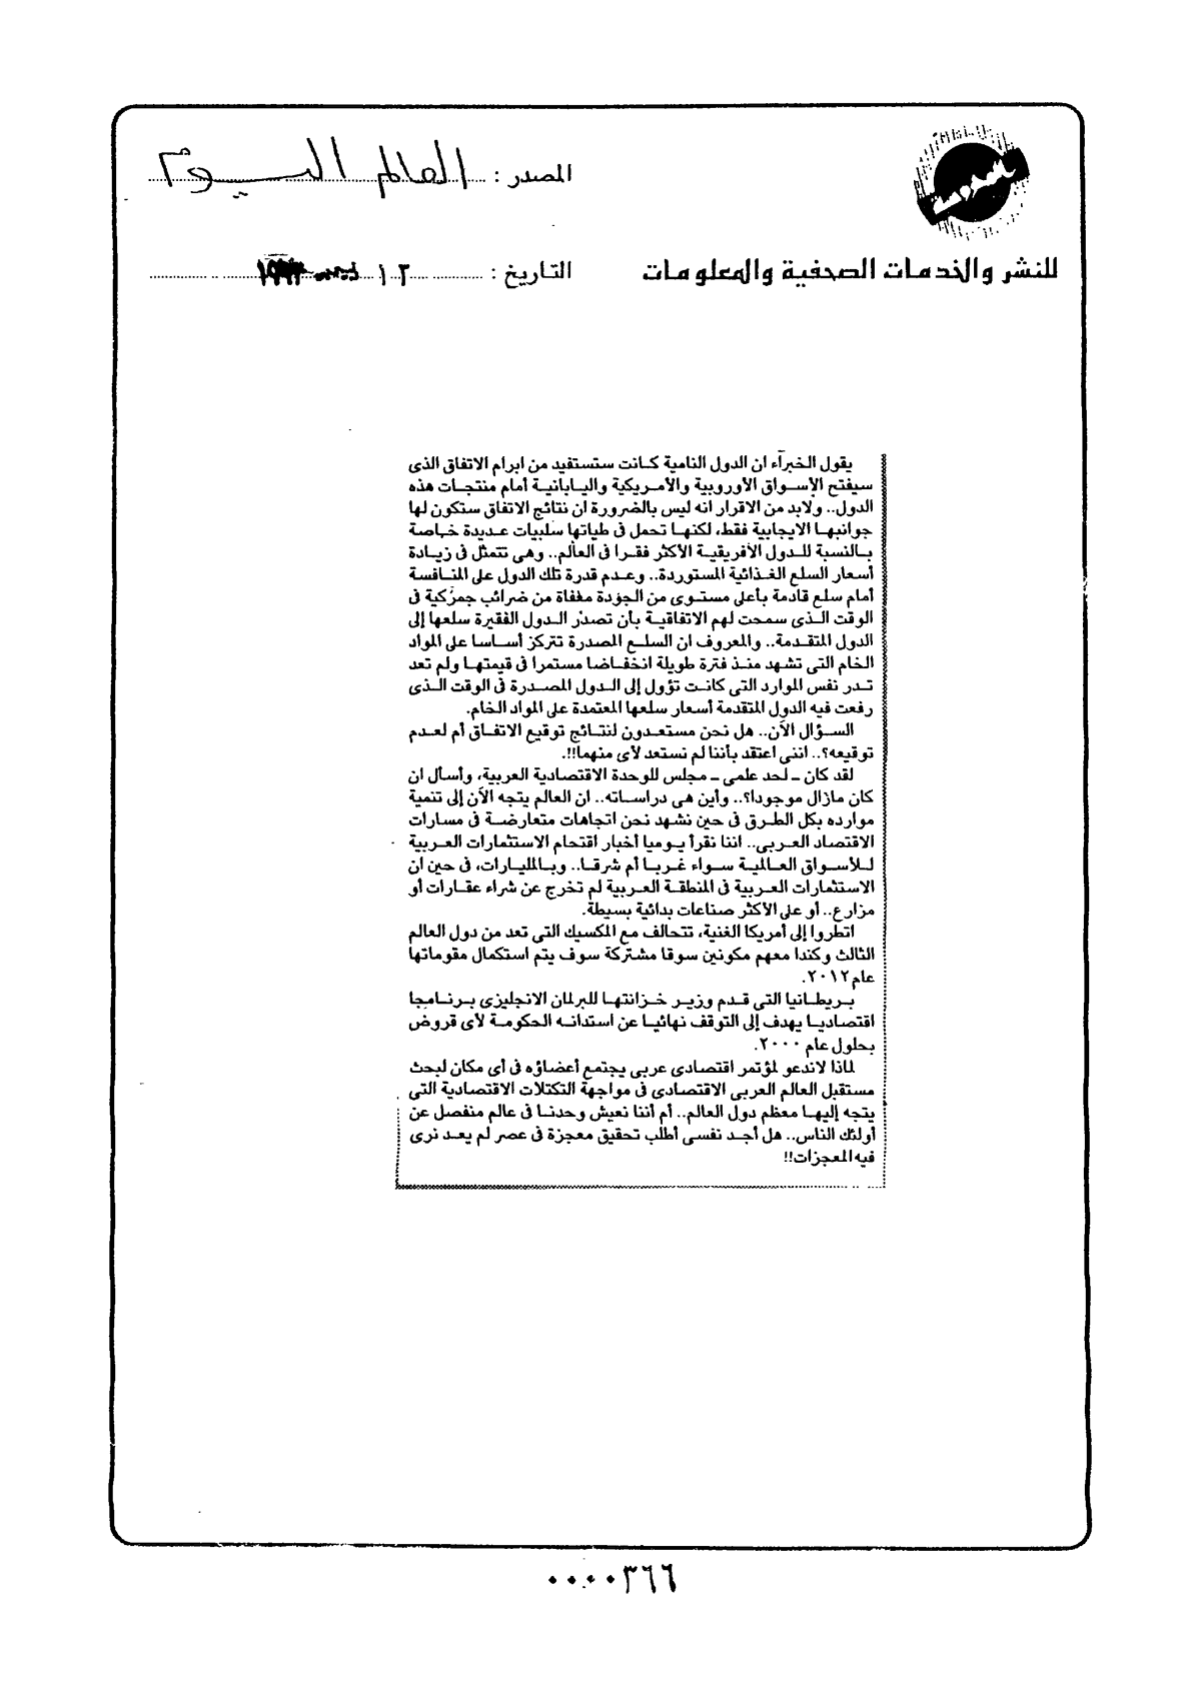 المصدر : العالم اليوم
للنشر والخدمات الصحفية والمعلومات
التاريخ : ١٢ ديسمبر ١٩٩٣
يقول الخبرآء ان الدول النامية كانت ستستفيد من ابرام الاتفاق الذى
سيفتح الإسواق الأوروبية والأمريكية واليابانية أمام منتجات هذه
الدول.. ولابد من الاقرار انه ليس بالضرورة ان نتائج الاتفاق ستكون لها
جوانبها الايجابية فقط، لكنها تحمل فى طياتها سلبيات عديدة خاصة
بالنسبة للدول الأفريقية الأكثر فقرا فى العالم.. وهى تتمثل فى زيادة
أسعار السلع الغذائية المستوردة.. وعدم قدرة تلك الدول على المنافسة
أمام سلع قادمة بأعلى مستوى من الجودة معفاة من ضرائب جمركية فى
الوقت الذى سمحت لهم الاتفاقية بأن تصدر الدول الفقيرة سلعها إلى
الدول المتقدمة.. والمعروف ان السلع المصدرة تتركز أساسا على المواد
الخام التى تشهد منذ فترة طويلة انخفاضا مستمرا فى قيمتها ولم تعد
تدر نفس الموارد التى كانت تؤول إلى الدول المصدرة فى الوقت الذى
رفعت فيه الدول المتقدمة أسعار سلعها المعتمدة على المواد الخام.
السؤال الآن.. هل نحن مستعدون لنتائج توقيع الاتفاق أم لعدم
توقيعه؟.. اننى اعتقد بأننا لم نستعد لأى منهما!!.
لقد كان ـ لحد علمى ـ مجلس للوحدة الاقتصادية العربية، وأسأل ان
كان مازال موجودا؟.. وأين هى دراساته.. ان العالم يتجه الآن إلى تنمية
موارده بكل الطرق فى حين نشهد نحن اتجاهات متعارضة فى مسارات
الاقتصاد العربى.. اننا نقرأ يوميا أخبار اقتحام الاستثمارات العربية
للأسواق العالمية سواء غربا أم شرقا.. وبالمليارات، فى حين ان
الاستثمارات العربية فى المنطقة العربية لم تخرج عن شراء عقارات أو
مزارع.. أو على الأكثر صناعات بدائية بسيطة.
انظروا إلى أمريكا الغنية، تتحالف مع المكسيك التى تعد من دول العالم
الثالث وكندا معهم مكونين سوقا مشتركة سوف يتم استكمال مقوماتها
عام ٢٠١٢.
بريطانيا التى قدم وزير خزانتها للبرلمان الانجليزى برنامجا
اقتصاديا يهدف إلى التوقف نهائيا عن استدانه الحكومة لأى قروض
بحلول عام ٢٠٠٠.
لماذا لاندعو لمؤتمر اقتصادى عربى يجتمع أعضاؤه فى أى مكان لبحث
مستقبل العالم العربى الاقتصادى فى مواجهة التكتلات الاقتصادية التى
يتجه إليها معظم دول العالم.. أم أننا نعيش وحدنا فى عالم منفصل عن
أولئك الناس.. هل أجد نفسى أطلب تحقيق معجزة فى عصر لم يعد نرى
فيه المعجزات!!
٠٠٠٠٣٦٦